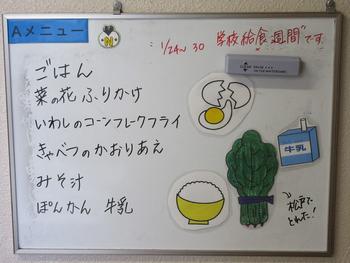 Aメニュー
1/24~30 学校給食週間"です
ごはん
菜の花ふりかけ
いわしのコーンフレークフライ
きゃべつのかおりあえ
みそ汁
ぽんかん 牛乳
牛乳
松戸で
とれた!